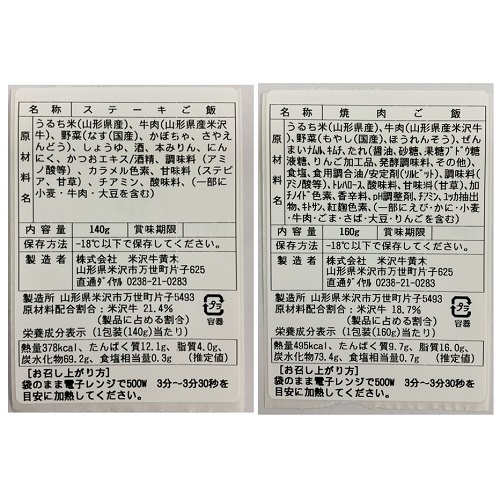 名称 ステーキご飯
原材料名
うるち米(山形県産)、牛肉(山形県産米沢
牛)、野菜(なす(国産)、かぼちゃ、さやえ
んどう)、しょうゆ、酒、本みりん、にん
にく、かつおエキス/酒精、調味料(アミ
ノ酸等)、カラメル色素、甘味料(ステビ
ア、甘草)、チアミン、酸味料、(一部に
小麦・牛肉・大豆を含む)
内容量 140g 賞味期限
保存方法 -18℃以下で保存してください。
製造者 株式会社 米沢牛黄木
山形県米沢市万世町片子625
直通ダイヤル 0238-21-0283
製造所 山形県米沢市万世町片子5493
原材料配合割合:米沢牛 21.4%
(製品に占める割合)
プラ
容器
栄養成分表示(1包装(140g)当たり)
熱量378kcal、たんぱく質12.1g、脂質4.0g、
炭水化物69.2g、食塩相当量0.3g (推定値)
[お召し上がり方]
袋のまま電子レンジで500W 3分〜3分30秒を
目安に加熱してください。
名称 焼肉ご飯
原材料名
うるち米(山形県産)、牛肉(山形県産米沢牛
)、野菜(もやし(国産)、ほうれんそう)、ぜん
まいナムル、キムチ、たれ(醤油、砂糖、果糖ブドウ糖
液糖、りんご加工品、発酵調味料、その他)、
食塩、食用調合油/安定剤(ソルビット)、調味料(
アミノ酸等)、トレハロース、酸味料、甘味料(甘草)、加
チノイド色素、香辛料、pH調整剤、チアミン、ユッカ抽出
物、キトサン、紅麹色素、(一部にえび・かに・小麦
・牛肉・ごま・さば・大豆・りんごを含む)
内容量 160g 賞味期限
保存方法 -18℃以下で保存してください。
製造者 株式会社 米沢牛黄木
山形県米沢市万世町片子625
直通ダイヤル 0238-21-0283
製造所 山形県米沢市万世町片子5493
原材料配合割合:米沢牛 18.7%
(製品に占める割合)
プラ
容器
栄養成分表示(1包装(160g)当たり)
熱量495kcal、たんぱく質9.7g、脂質16.0g、
炭水化物73.4g、食塩相当量0.7g (推定値)
[お召し上がり方]
袋のまま電子レンジで500W 3分〜3分30秒を
目安に加熱してください。